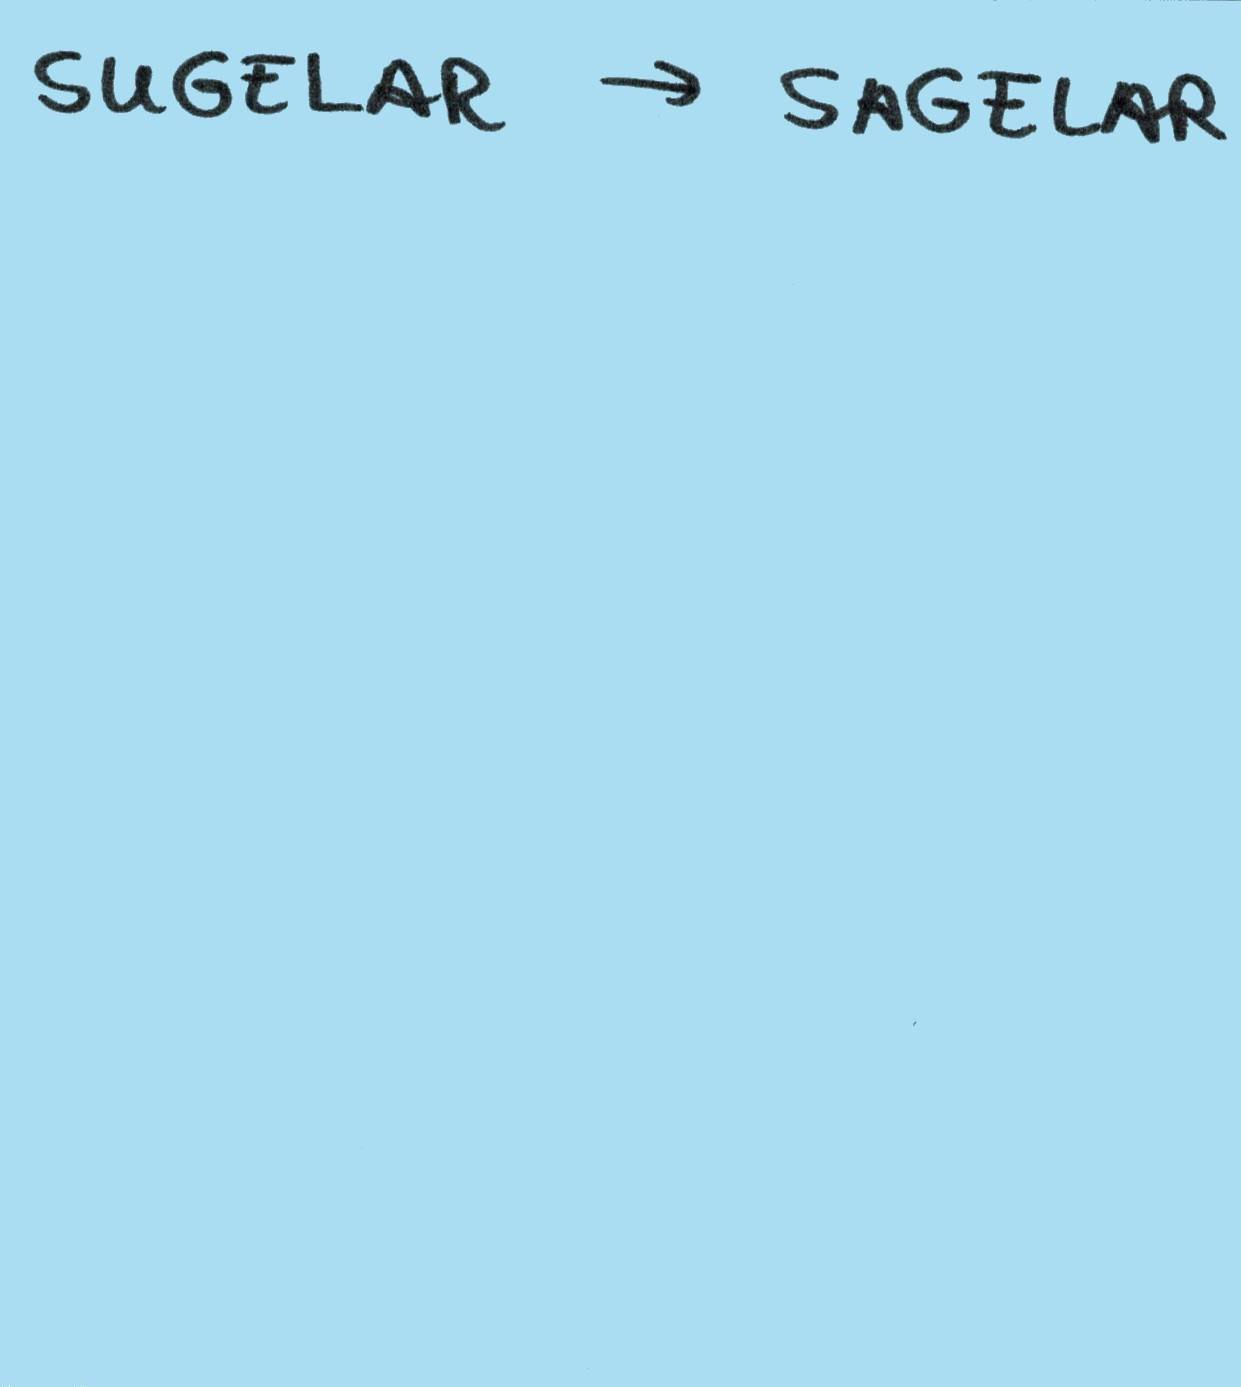 SUGELAR → SAGELAR